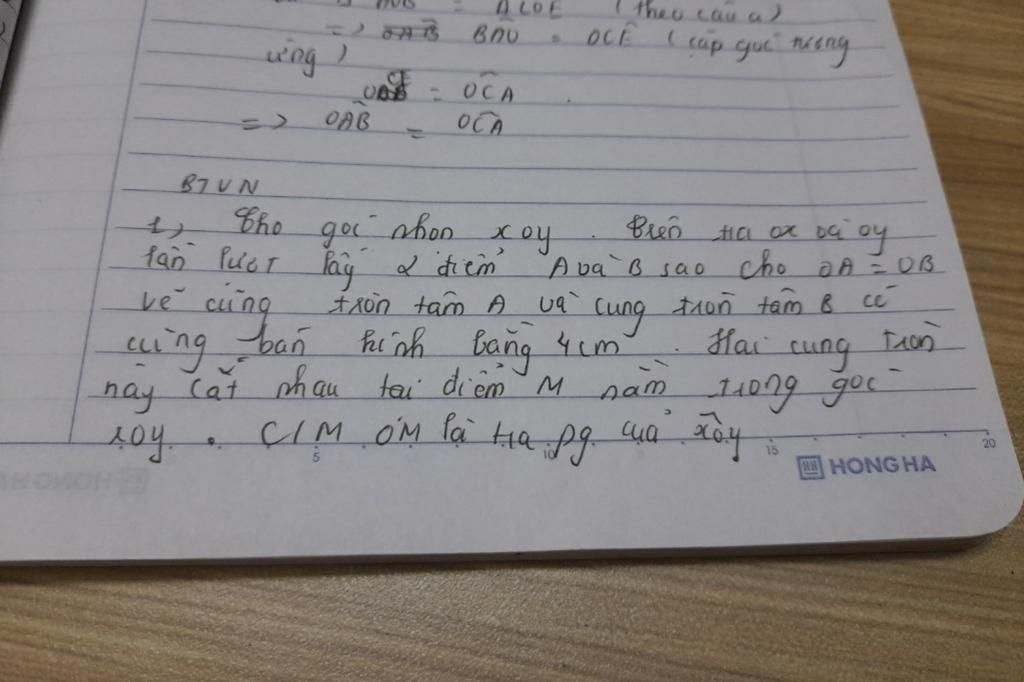 = ACOE (theo câu a)
=> BAO = OCE (cặp góc tương
ứng)
= OCA
=> OAB = OCA
BTVN
1, Cho góc nhọn xoy. Trên tia ox và oy
lần lượt lấy 2 điểm A và B sao cho OA = OB
vẽ cung tròn tâm A và cung tròn tâm B có
cùng bán kính bằng 4cm. Hai cung tròn
này cắt nhau tại điểm M nằm trong góc
xoy. C/M OM là tia pg của xôy
5 10 15 20
HONG HA